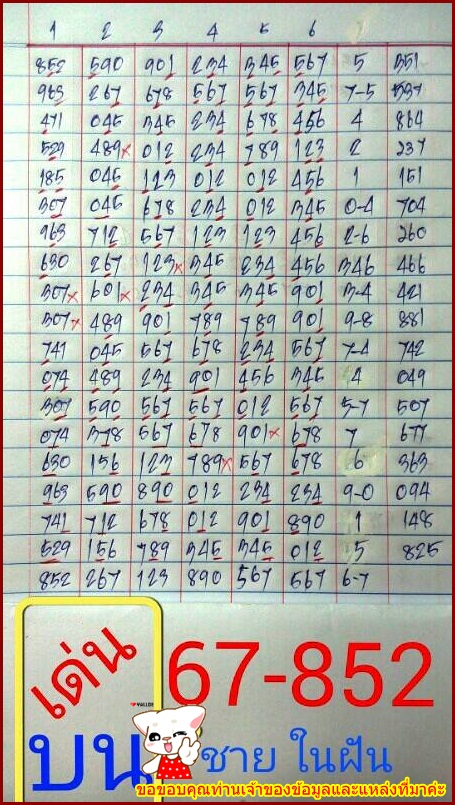 1 2 3 4 5 6
852 590 901 234 345 567 5 351
963 267 678 567 567 345 7-5 537
471 045 345 234 678 456 4 864
529 489x 012 234 789 123 2 237
185 045 123 012 012 456 1 151
307 045 678 234 012 345 0-4 704
963 712 567 123 123 456 2-6 260
630 267 123x 345 234 456 346 466
307x 601x 234 345 345 901 3-4 421
307x 489 901 789 789 901 9-8 881
741 045 567 678 234 567 7-4 742
074 489 234 901 456 345 4 049
307 590 567 567 012 567 5-7 507
074 378 567 678 901x 678 7 677
630 156 123 789x 567 678 6 363
963 590 890 012 234 234 9-0 094
741 712 678 012 901 890 1 148
529 156 789 345 345 012 5 825
852 267 123 890 567 567 6-7
เด่น 67-852
บน ชาย ในฝัน
ขอขอบคุณท่านเจ้าของข้อมูลและแหล่งที่มาค่ะ